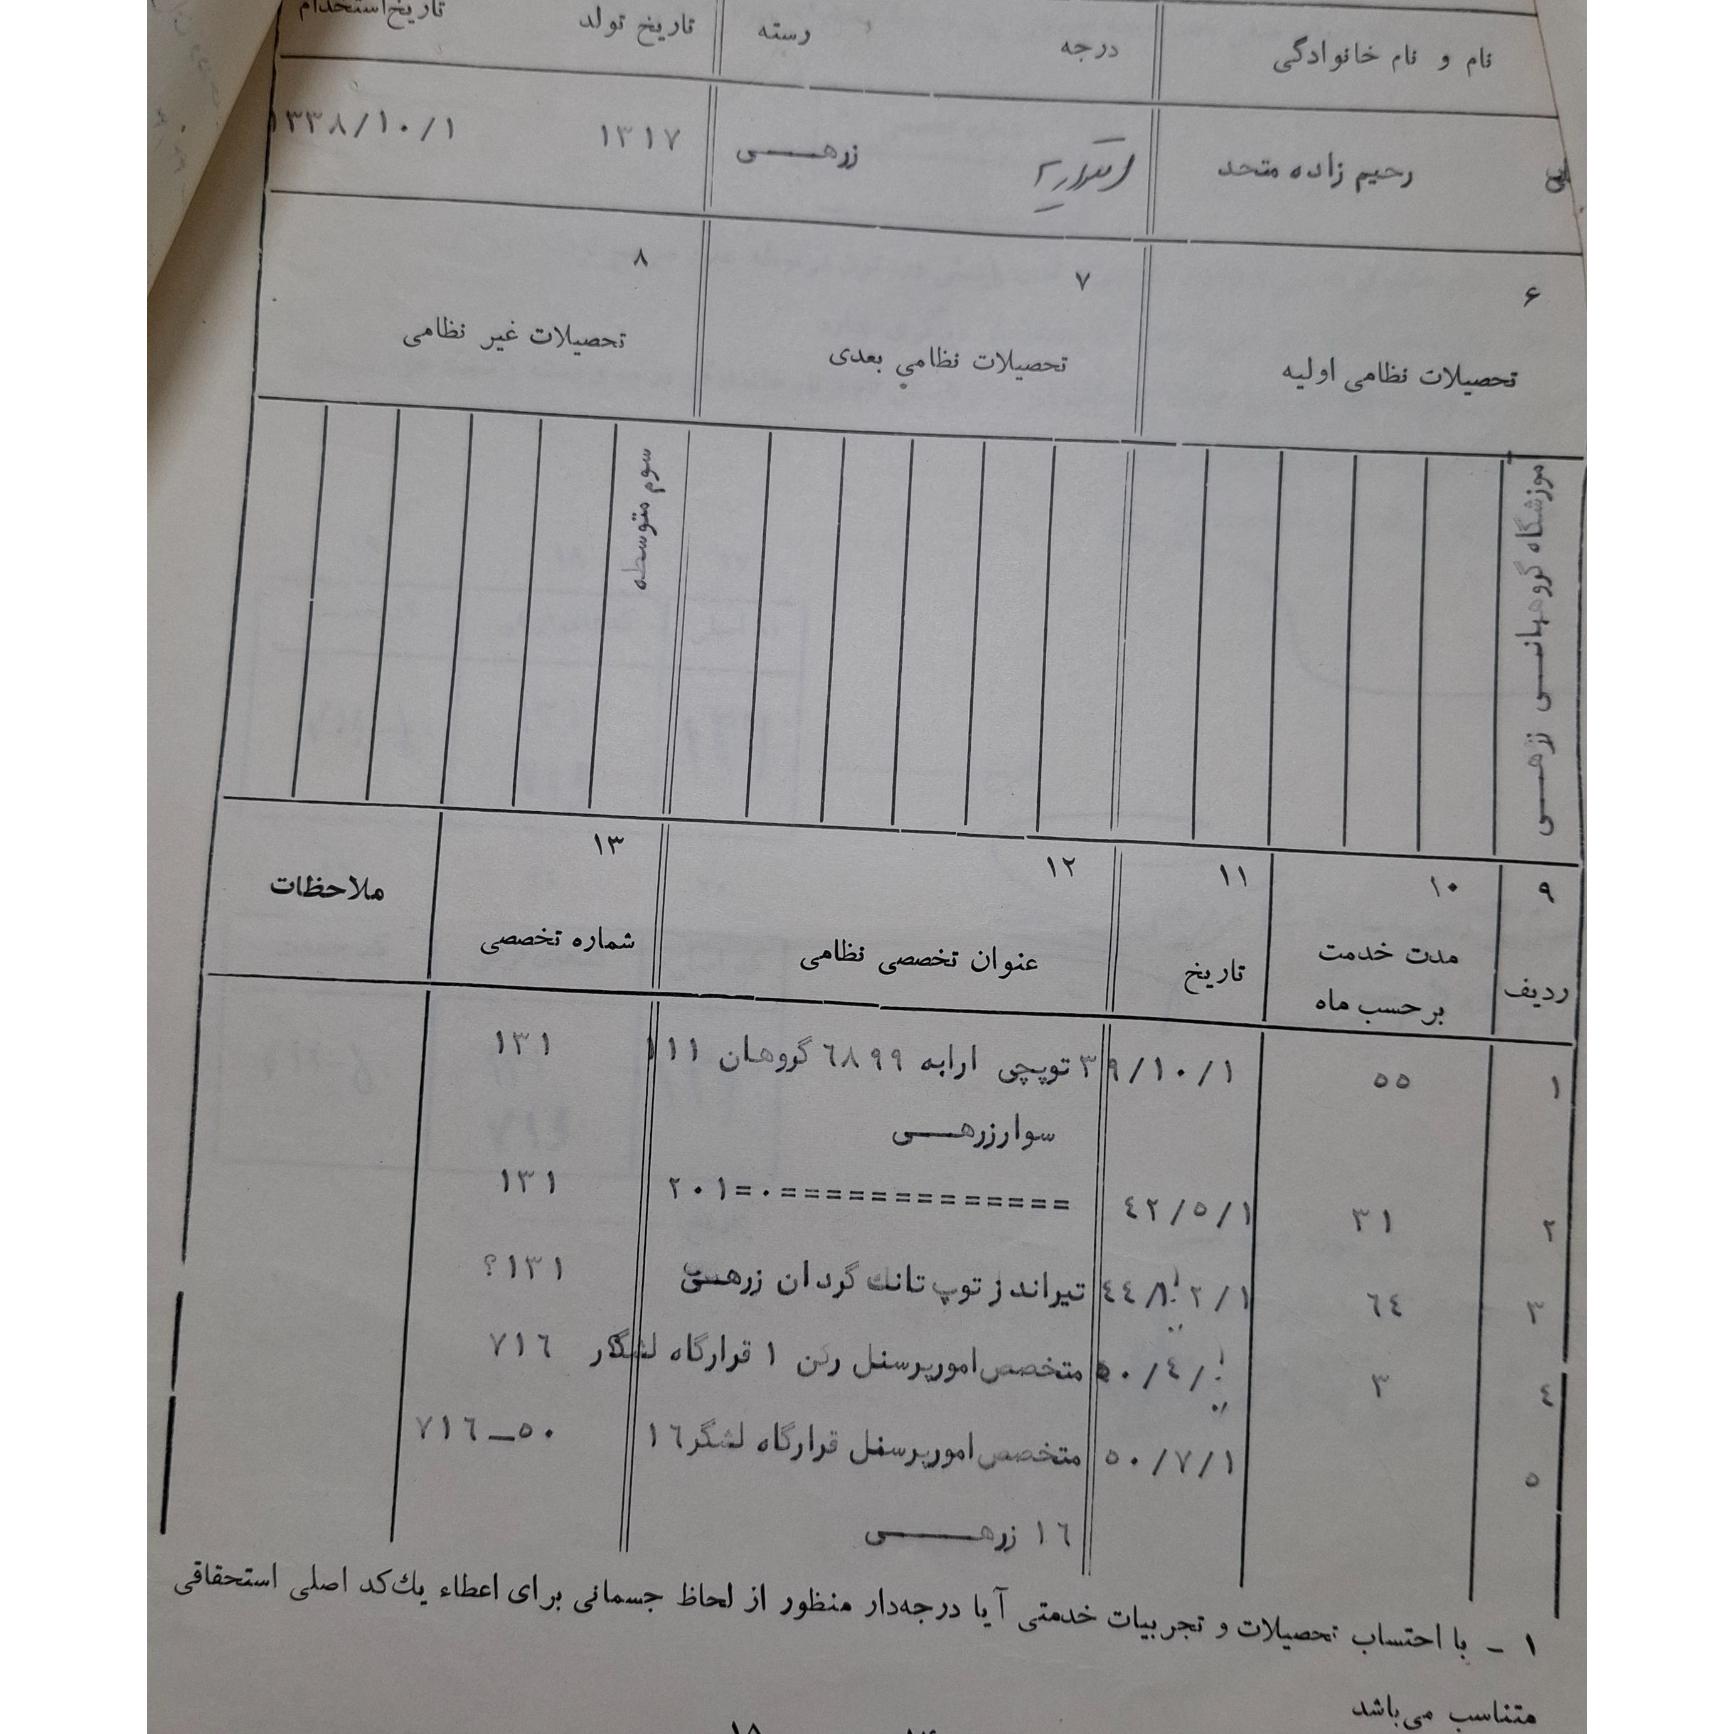 نام و نام خانوادگی درجه رسته تاریخ تولد تاریخ استخدام
رحیم زاده متحد زرهــی ۱۳۱۷ ۱۳۳۸/۱۰/۱
۶ ۷ ۸
تحصیلات نظامی اولیه تحصیلات نظامی بعدی تحصیلات غیر نظامی
آموزشگاه گروهبانــی زرهــی
سوم متوسطه
۹ ۱۰ ۱۱ ۱۲ ۱۳
ردیف مدت خدمت بر حسب ماه تاریخ عنوان تخصصی نظامی شماره تخصصی ملاحظات
۱ ۵۵ ۳۹/۱۰/۱ توپچی ارابه ٦۸۹۹ گروهان ۱۱۱ ۱۳۱
سوار زرهــی
۲ ۳۱ ٤۲/۵/۱ ==============۰=۲۰۱ ۱۳۱
۳ ٦٤ تیرانداز توپ تانك گردان زرهــی ۱۳۱؟
٤ ۳ متخصص امور پرسنل رکن ۱ قرارگاه لشگر ۷۱٦
۵ ۵۰/۷/۱ متخصص امور پرسنل قرارگاه لشگر ۱٦ ۷۱٦ــ۵۰
۱٦ زرهــی
۱ - با احتساب تحصیلات و تجربیات خدمتی آیا درجه‌دار منظور از لحاظ جسمانی برای اعطاء یك کد اصلی استحقاقی
متناسب می‌باشد